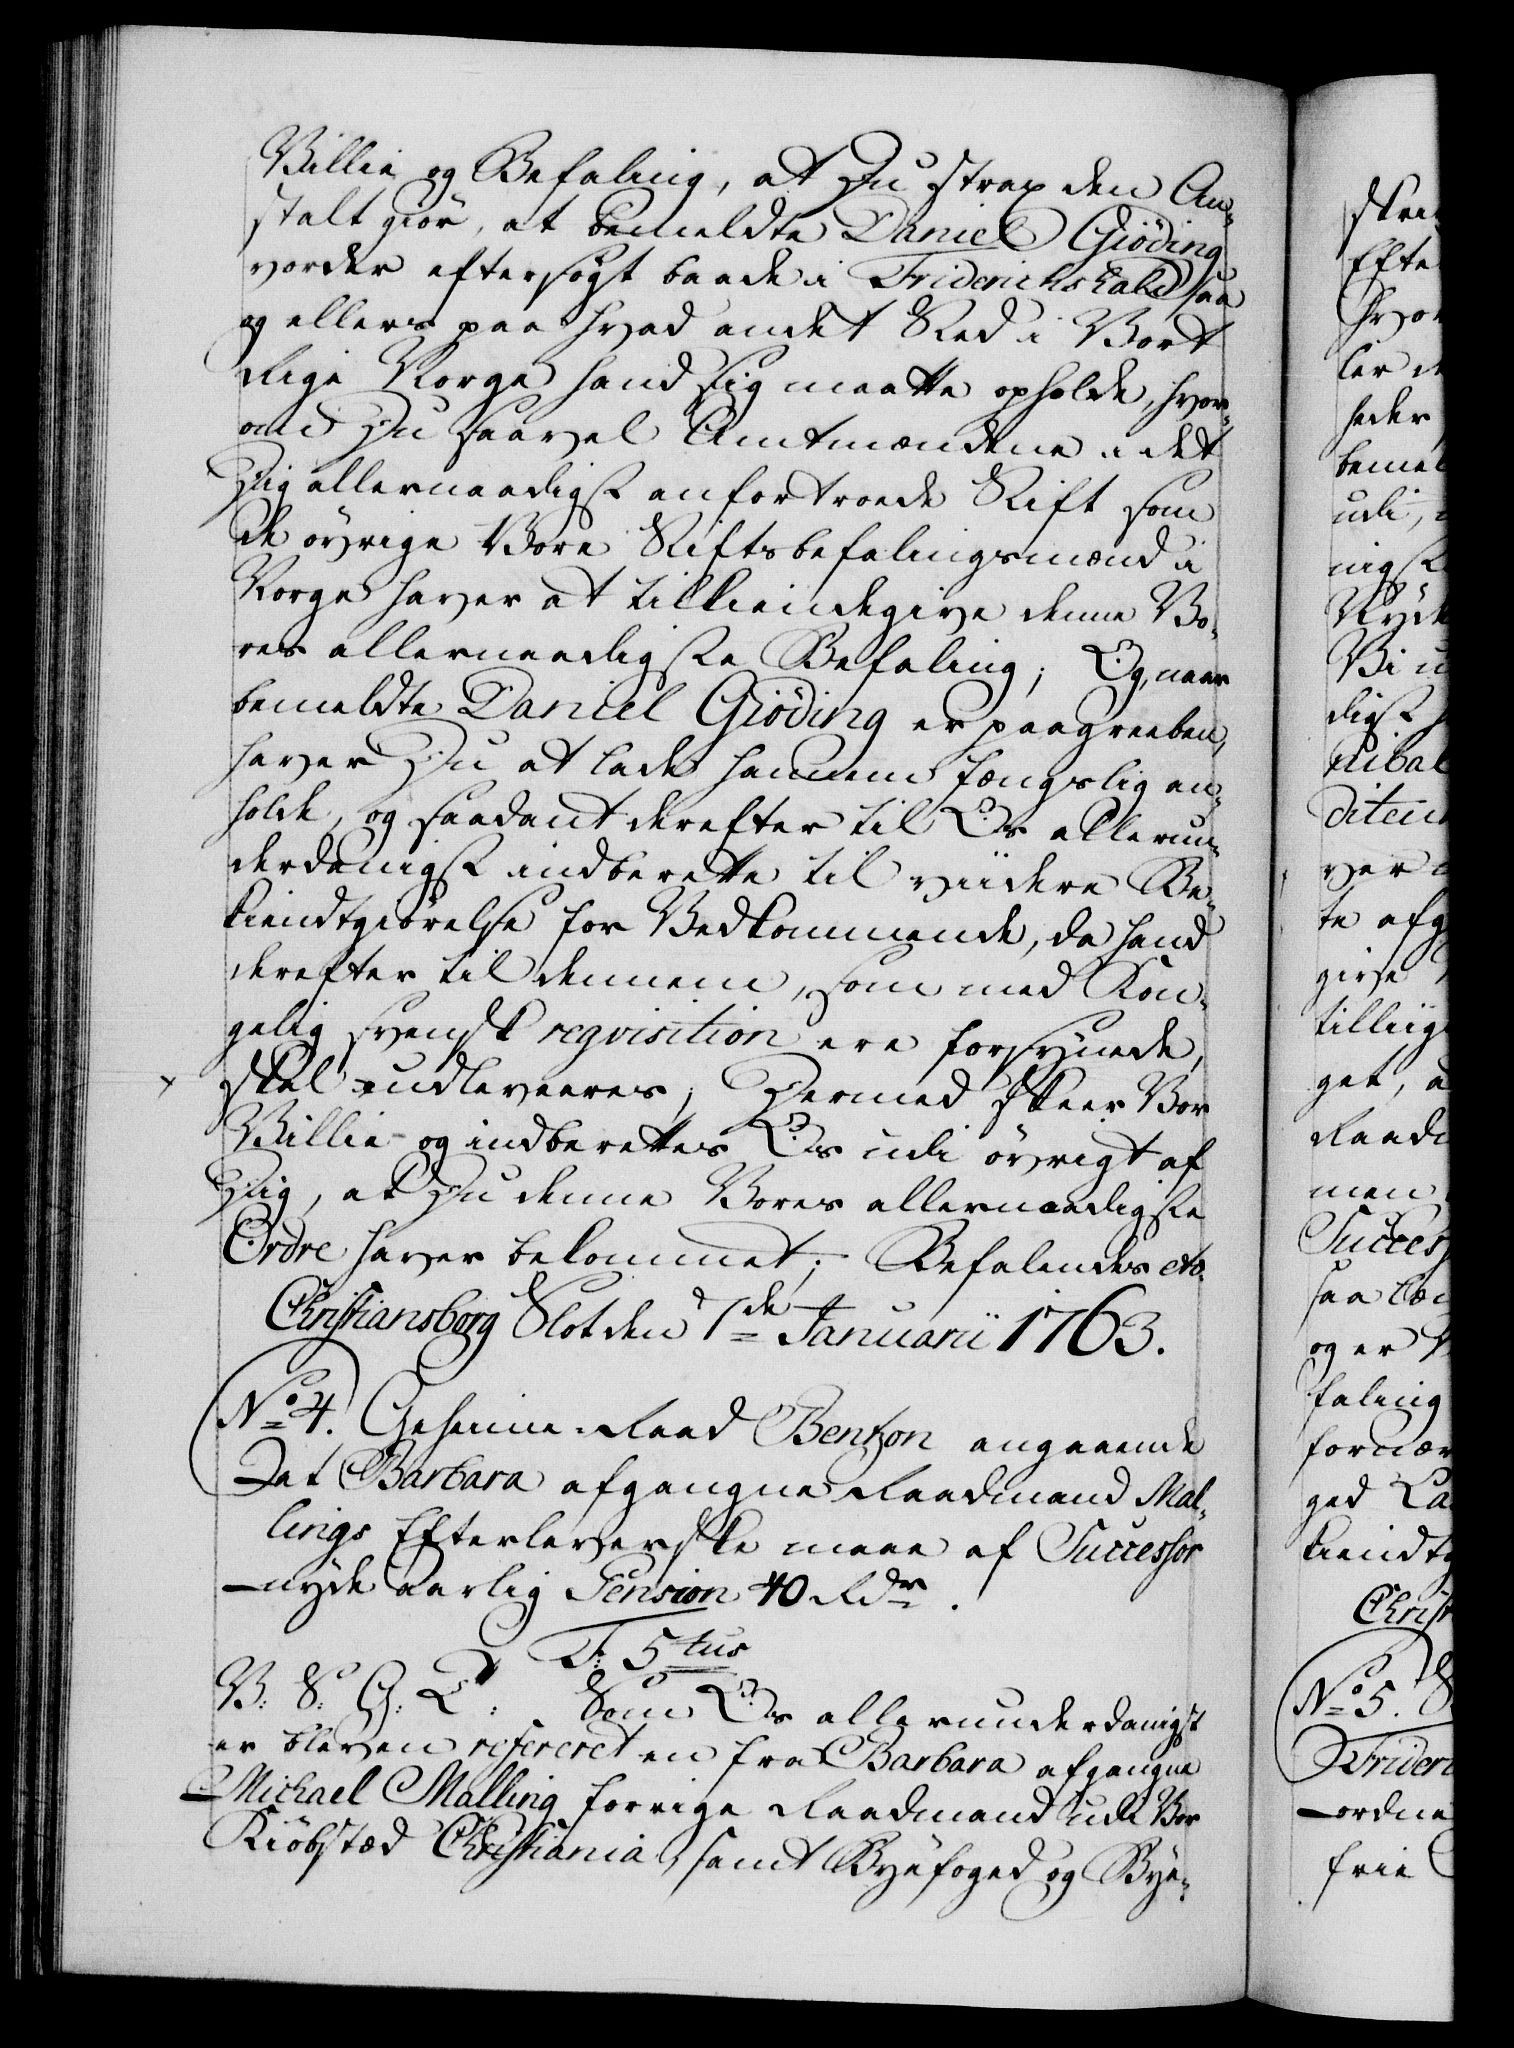 Villie og Befaling, at Du strax den An-
stalt giör, at bemeldte Daniel Giöding
vorder eftersögt baade i Friderichshald saa
og ellers paa hvad andet Sted i Vort
Rige Norge hand sig maatte opholde, hvor-
om Du saavel Amtmændene i det
Dig allernaadigst anfortroede Stift som
de övrige Vore Stiftsbefalingsmænd i
Norge haver at tilkiendegive denne Vo-
res allernaadigste Befaling; Og, naar
bemeldte Daniel Giöding er paagreeben,
haver Du at lade hannem fængslig an-
holde, og saadant derefter til Os allerun-
derdanigst indberette til viidere Be-
kiendtgiörelse for Vedkommende, da hand
derefter til dennem, som med Kon-
gelig svensk reqvisition ere forsynede,
skal udleveres; Dermed skeer Vor
Villie og indberettes Os udi övrigt af
Dig, at Du denne Vores allernaadigste
Ordre haver bekommet; Befalendes etc.
Christiansborg Slot den 7de Januarii 1763.
No 4. Geheime-Raad Benzon angaaende
Dat Barbara afgangne Raadmand Mal-
lings Efterleverske maae af Successor
nyde aarlig Pension 40 Rdr.
F: 5tus
V: S: G: T: Som Os allerunderdanigst
er bleven refereret en fra Barbara afgangne
Michael Malling forrige Raadmand udi Vor
Kiöbstæd Christiania, samt Byefoged og Bye-
Efte
bemel
udi,
Vi u
te afg
get, a
men
Success
og er
faling
kiendtg
Christ
No 5. S
Frideri
ordne
frie